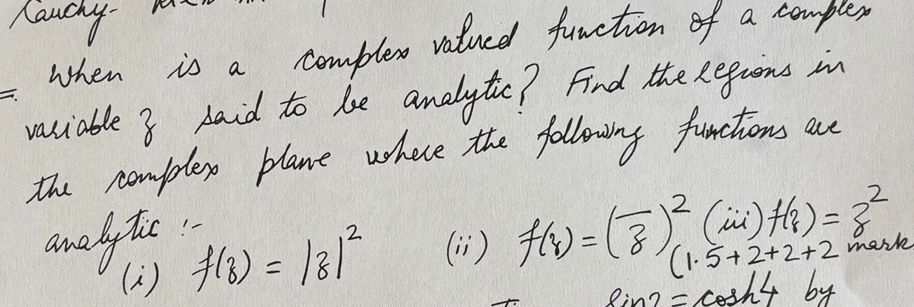 Cauchy-
= When is a complex valued function of a complex
variable z said to be analytic? Find the regions in
the complex plane where the following functions are
analytic :-
(i) f(z) = |z|² (ii) f(z) = (z̅)² (iii) f(z) = z²
(1.5+2+2+2 mark
sin2 = cosh4 by